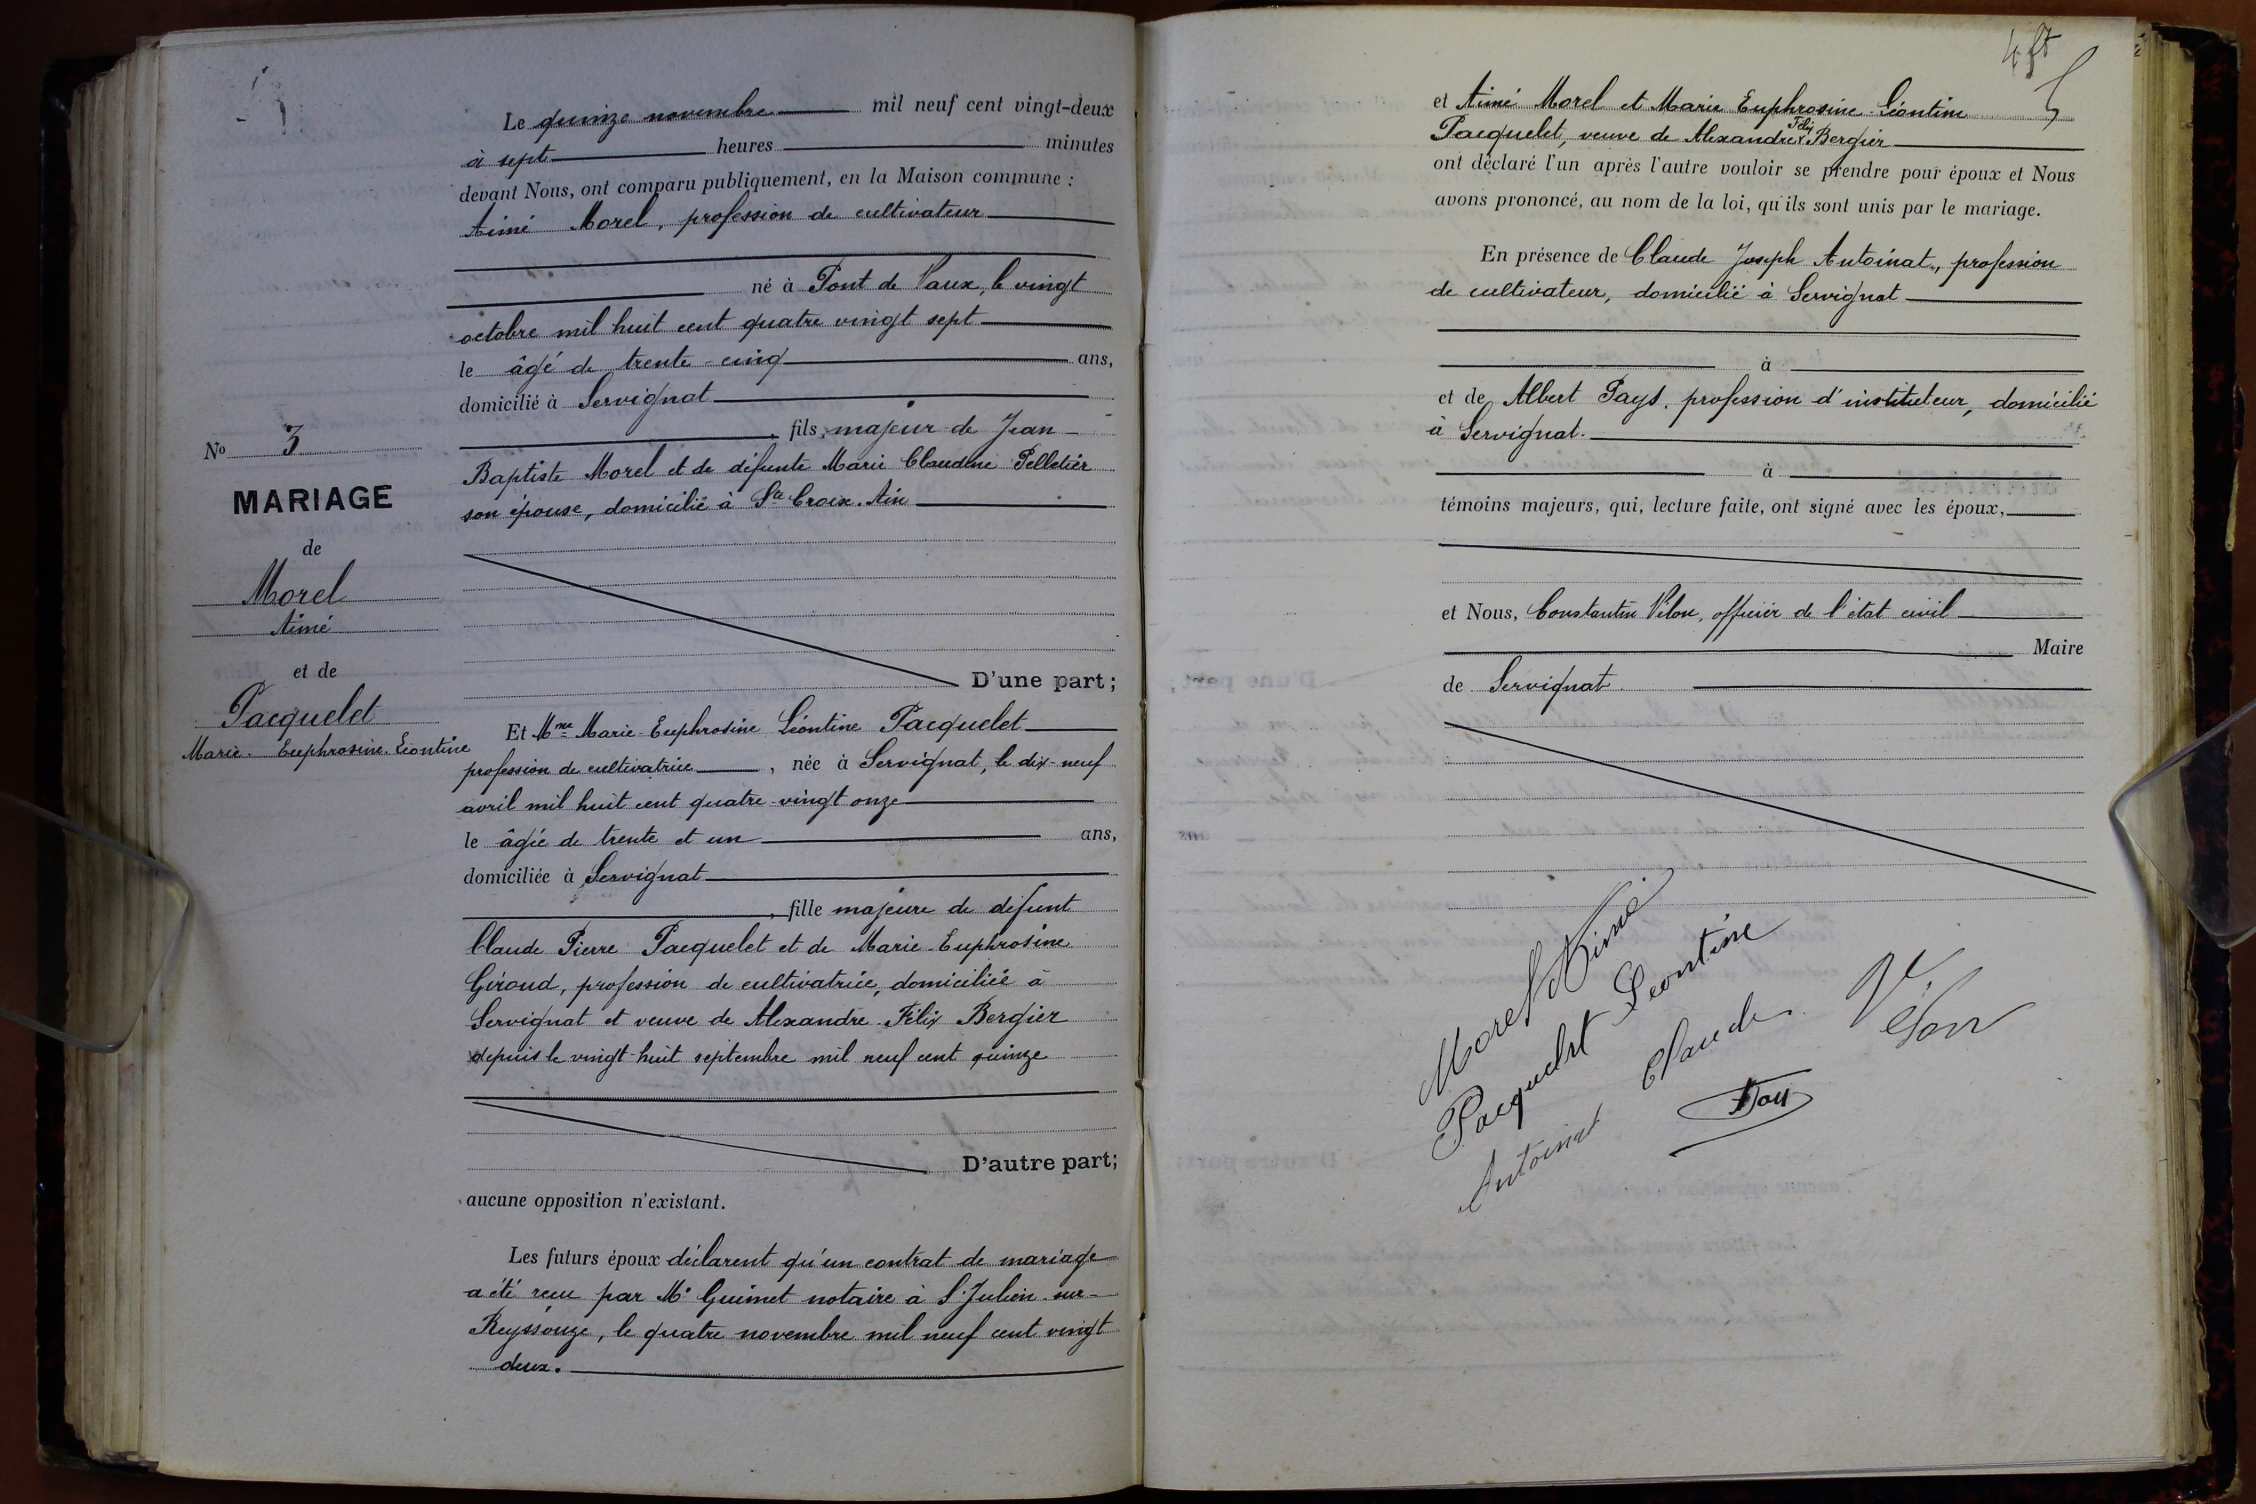 N° 3
MARIAGE
de
Morel
Aimé
et de
Pacquelet
Marie-Euphrosine-Léontine
Le quinze novembre mil neuf cent vingt-deux
à sept heures minutes
devant Nous, ont comparu publiquement, en la Maison commune :
Aimé Morel, profession de cultivateur
né à Pont de Vaux, le vingt
octobre mil huit cent quatre vingt sept
le âgé de trente-cinq ans,
domicilié à Servignat
, fils majeur de Jean-
Baptiste Morel et de défunte Marie Claudine Pelletier
son épouse, domicilié à Ste Croix. Ain
D'une part ;
Et Mme Marie-Euphrosine Léontine Pacquelet
profession de cultivatrice, née à Servignat, le dix-neuf
avril mil huit cent quatre-vingt onze
le âgée de trente et un ans,
domiciliée à Servignat
, fille majeure de défunt
Claude Pierre Pacquelet et de Marie-Euphrosine
Géroud, profession de cultivatrice, domiciliée à
Servignat et veuve de Alexandre-Félix Bergier
depuis le vingt-huit septembre mil neuf cent quinze
D'autre part;
aucune opposition n'existant.
Les futurs époux déclarent qu'un contrat de mariage
a été reçu par Me Guimet notaire à St Julien-sur-
Reyssouze, le quatre novembre mil neuf cent vingt
deux.
et Aimé Morel et Marie Euphrosine-Léontine
Félix
Pacquelet, veuve de Alexandre Bergier
ont déclaré l'un après l'autre vouloir se prendre pour époux et Nous
avons prononcé, au nom de la loi, qu'ils sont unis par le mariage.
En présence de Claude Joseph Antoinat, profession
de cultivateur, domicilié à Servignat
à
et de Albert Pays, profession d'instituteur, domicilié
à Servignat.
à
témoins majeurs, qui, lecture faite, ont signé avec les époux,
et Nous, Constantin Vélon, officier de l'état civil
Maire
de Servignat
Morel Aimé
Pacquelet Léontine
Antoinat Claude
Vélon